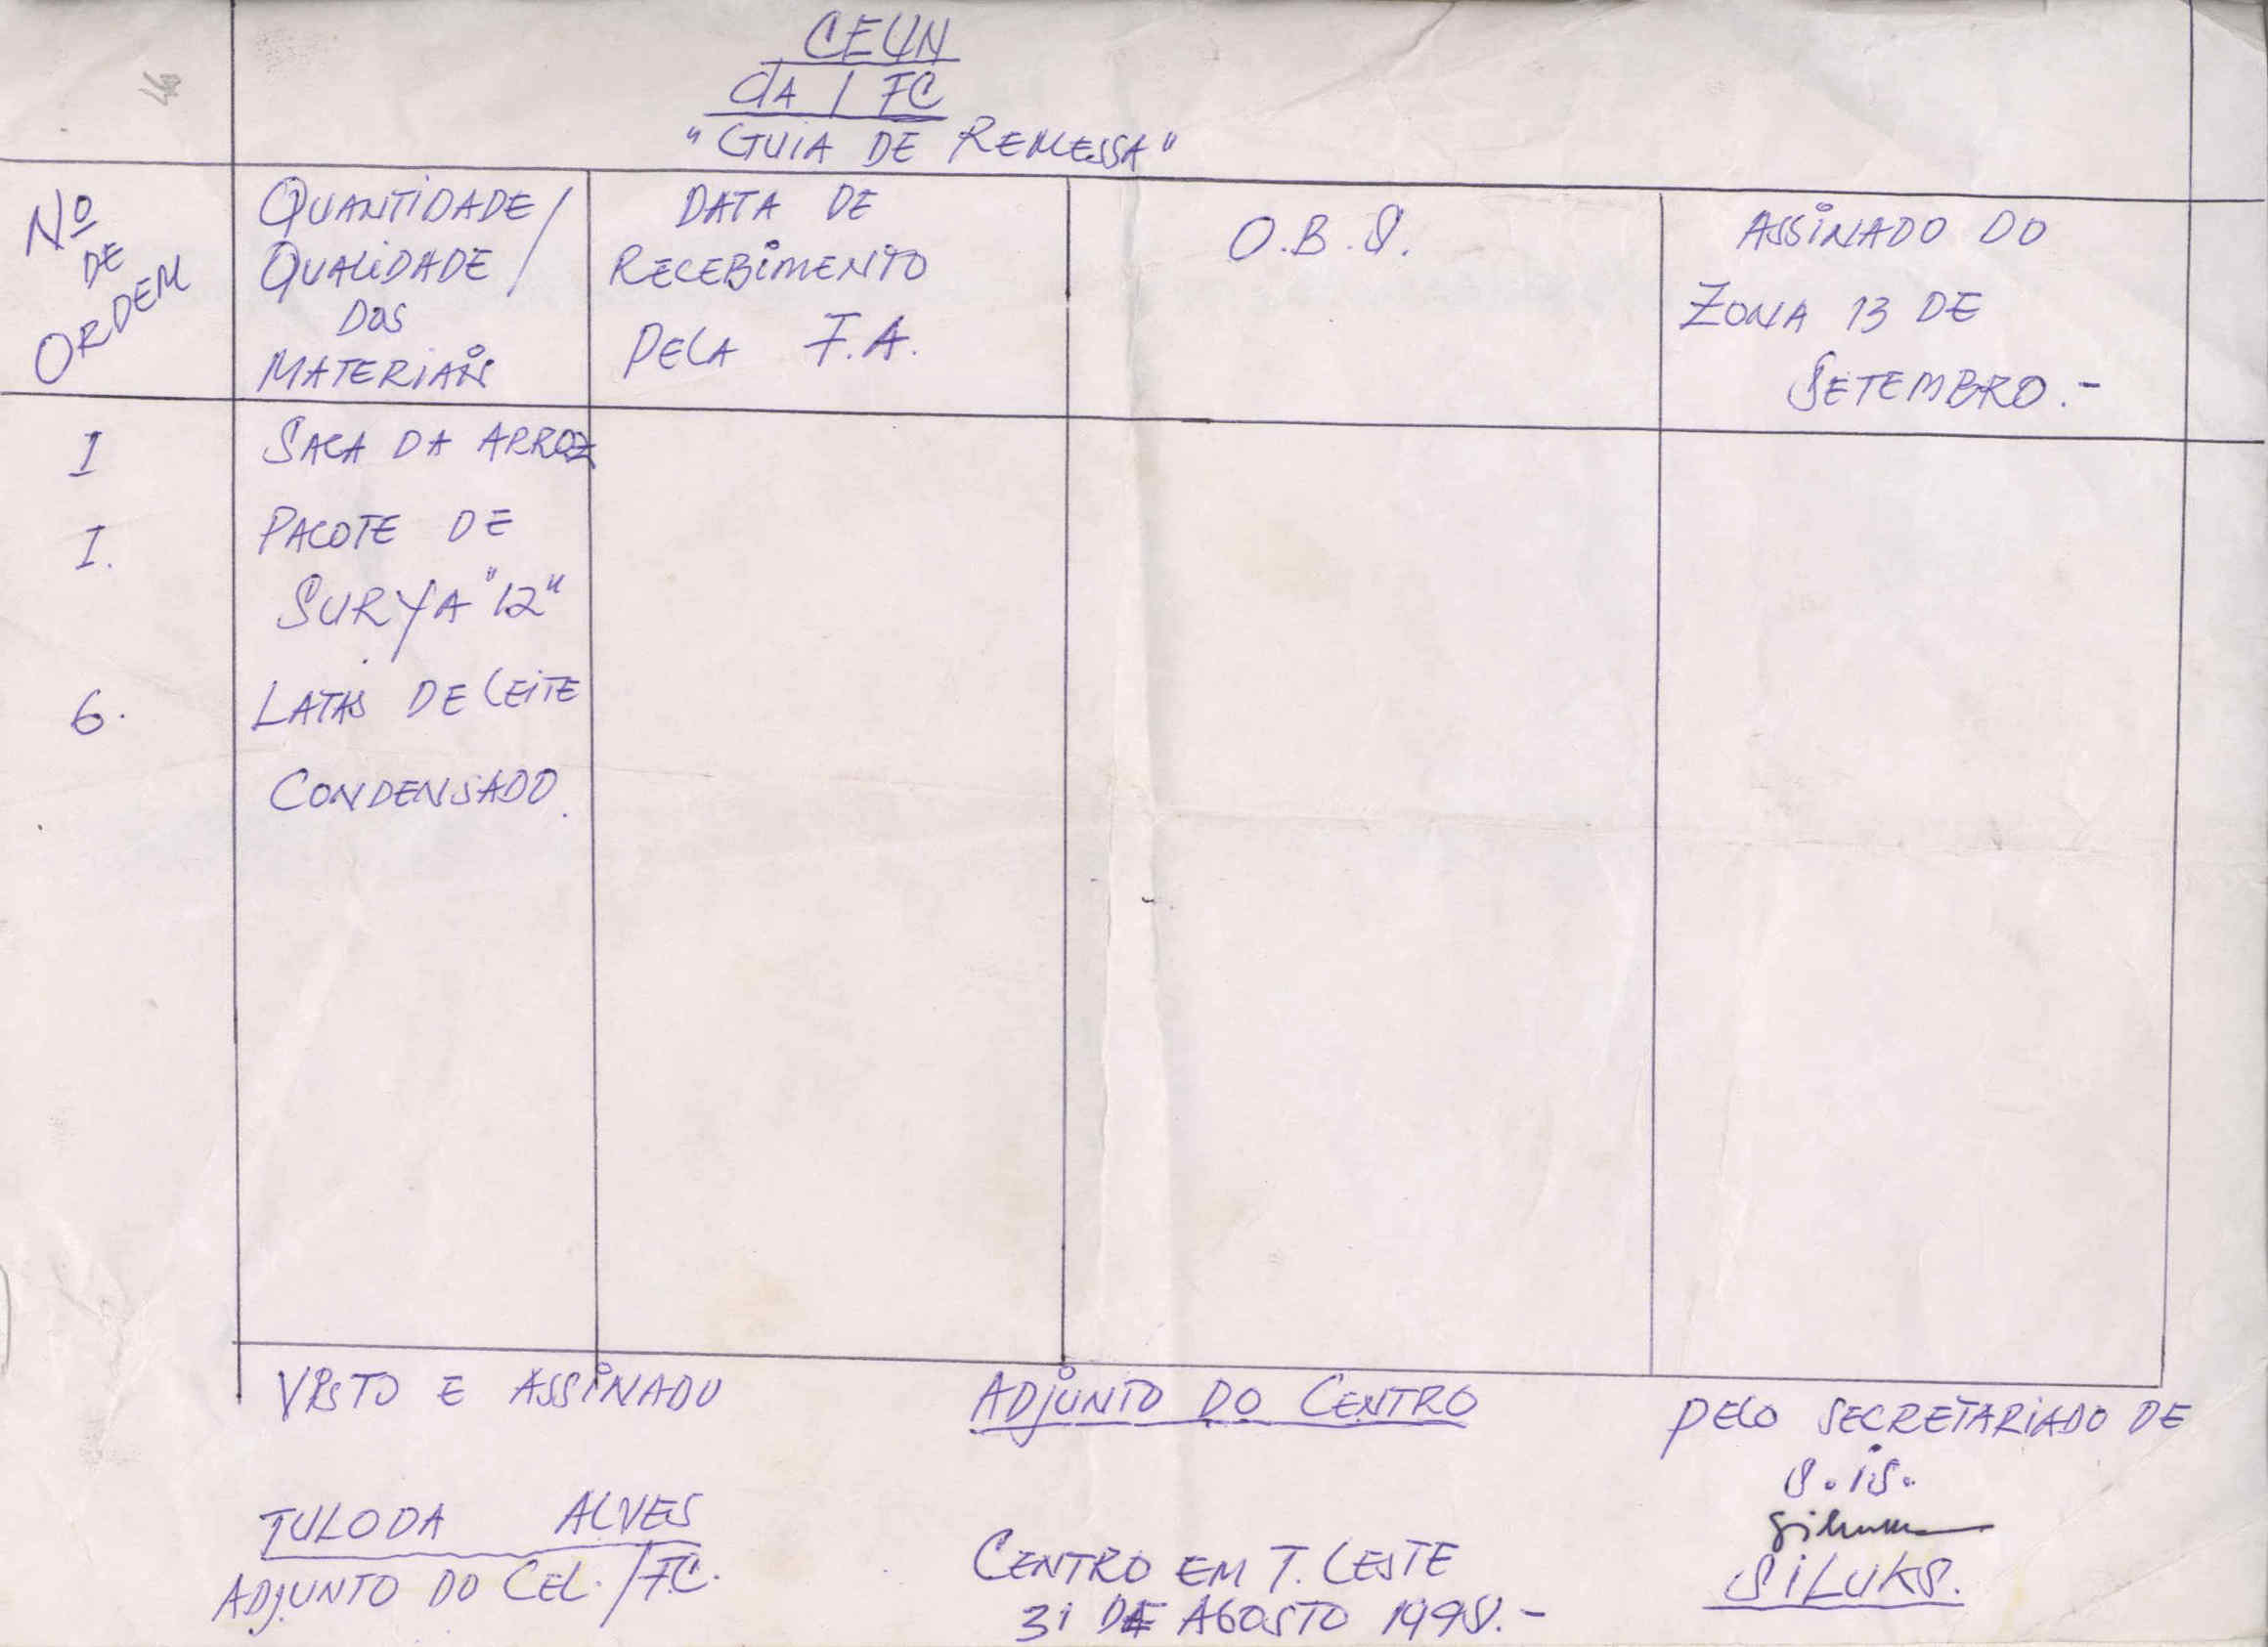 CEUN
da / FC
"GUIA DE REMESSA"
Nº
DE
ORDEM
QUANTIDADE /
QUALIDADE /
DOS
MATERIAIS
DATA DE
RECEBIMENTO
PELA F.A.
O.B.S.
ASSINADO DO
ZONA 13 DE
SETEMBRO.-
I
SACA DA ARROZ
I.
PACOTE DE
SURYA "12"
6.
LATAS DE LEITE
CONDENSADO.
VISTO E ASSINADO
TULODA ALVES
ADJUNTO DO CEL. / FC.
ADJUNTO DO CENTRO
CENTRO EM T. LESTE
31 DE AGOSTO 1998.-
PELO SECRETARIADO DE
S.IS.
SILUKS.